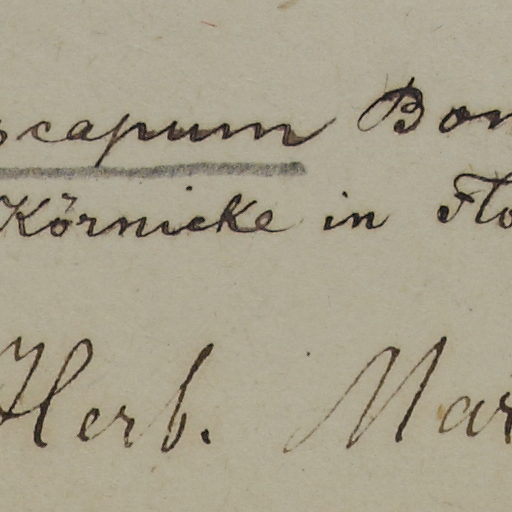 scapum Bon
Körnicke in Flo
Herb. Mar